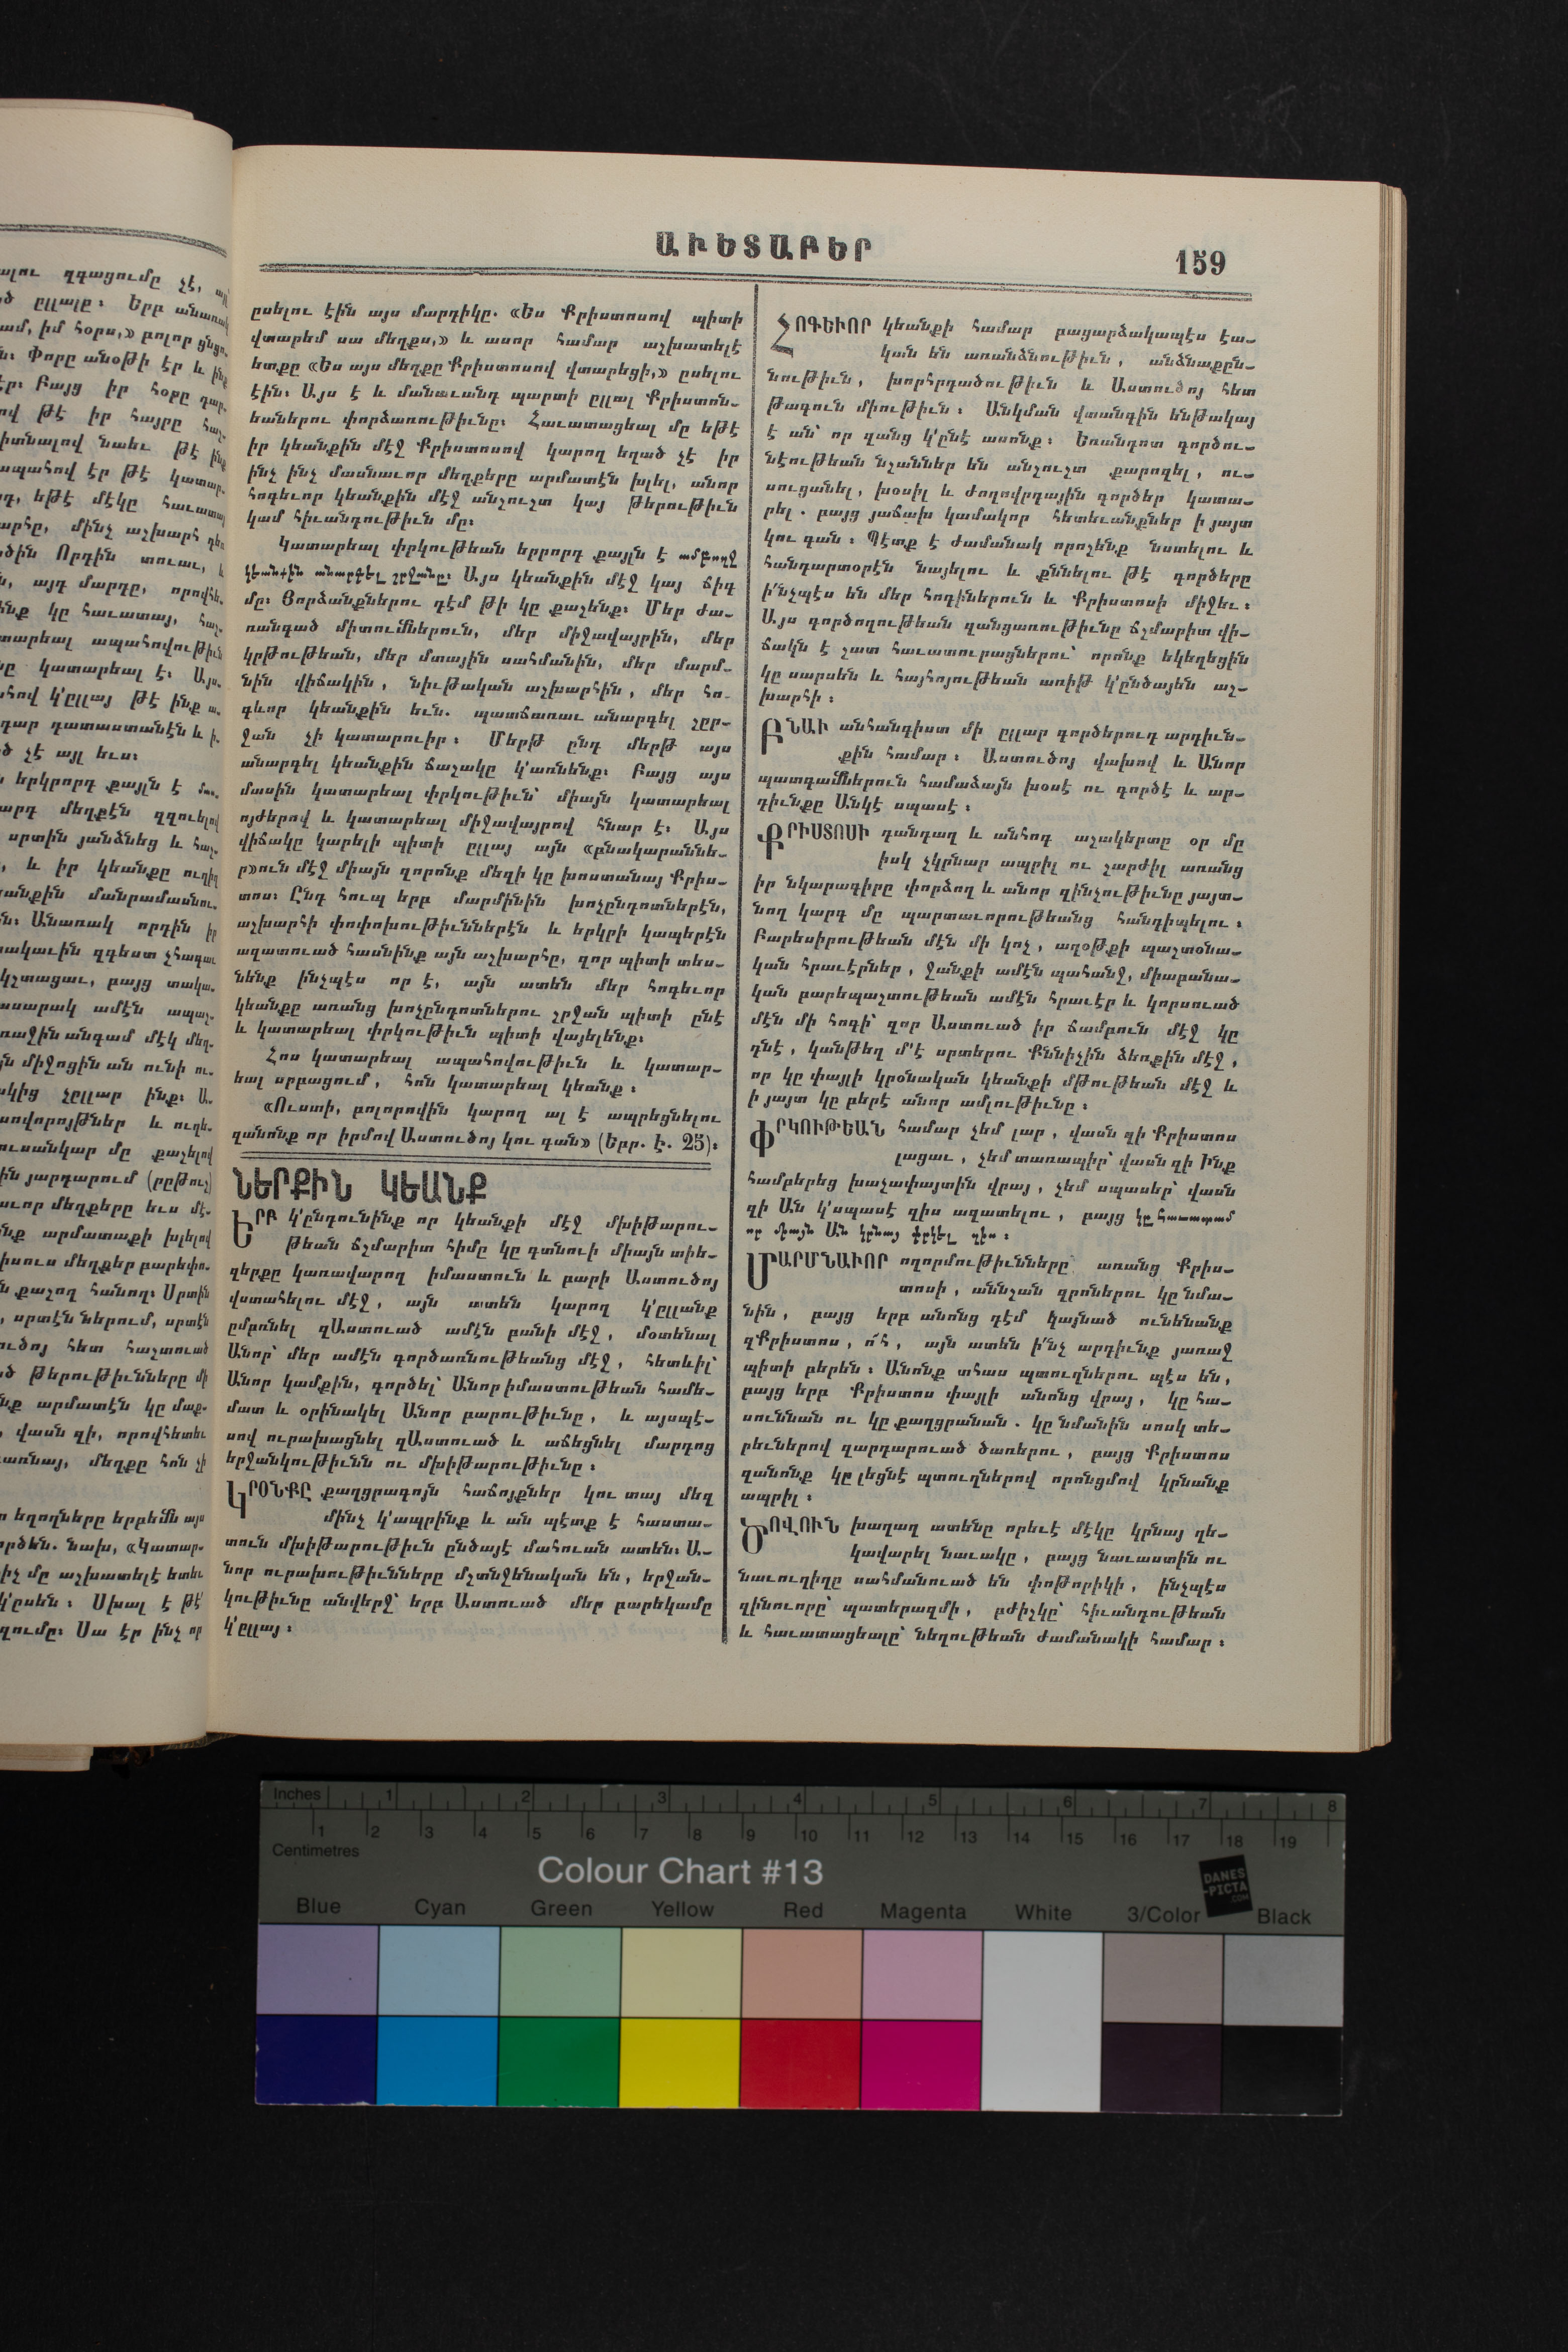 ալու զգացումը չէ,
ծ ըլլալը։ Երբ անառակ
ամ, իմ հօրս,» բոլոր
Փորը անօթի էր և ինք
էր։ Բայց իր հօրը
ով թէ իր հայրը
իտնալով նաեւ թէ ինք
սպահով էր թէ
եթէ մէկը
մինչ աշխարհ
ծին Որդին տուաւ,
այդ մարդը,
ինք կը հաւատայ,
տարեալ ապահովութիւն
ը կատարեալ է։
հով կ'ըլլայ թէ ինք
դար դատաստանէն և ի
ծ չէ այլ եւս։
երկրորդ քայլն է
արդ մեղքէն զզուելով
սրտին յանձնեց և
և իր կեանքը ուղիղ
եանքին մանրամասնու-
Անառակ որդին իր
զգեստ չհագաւ
բայց
ասարակ ամէն
ռաջին անգամ մէկ մեղ-
ն միջոցին ան ունի
ակից չըլլար ինք։
սովորոյթներ և
ուսանկար մը քաշելով
ին յարդարում
աւոր մեղքերը եւս մէ-
նք արմատաքի խլելով
իսուս մեղքեր
ն քաշող հանող։ Սրտին
սրտէն ներում, սրտէն
ուծոյ հետ հաշտուած
ծ թերութիւնները մի
նք արմատէն կը մաք-
վասն զի, որովհետեւ
առնայ, մեղքը հոն չի
եղողները երբեմն այս
նախ, «Կատար-
իչ մը աշխատելէ ետեւ
կ'ըսեն։ Սխալ է թէ
զումը։ Սա էր ինչ որ
ԱՒԵՏԱԲԵՐ
159
ըսելու էին այս մարդիկը. «Ես Քրիստոսով պիտի
վտարեմ սա մեղքս,» և ասոր համար աշխատելէ
ետքը «Ես այս մեղքը Քրիստոսով վտարեցի,» ըսելու
էին։ Այս է և մանաւանդ պարտի ըլլալ Քրիստոն-
եաներու փորձառութիւնը։ Հաւատացեալ մը եթէ
իր կեանքին մէջ Քրիստոսով կարող եղած չէ իր
ինչ ինչ մասնաւոր մեղքերը արմատէն խլել, անոր
հոգեւոր կեանքին մէջ անշուշտ կայ թերութիւն
կամ հիւանդութիւն մը։
Կատարեալ փրկութեան երրորդ քայլն է ամբողջ
կեանքին անարգել շրջանը։ Այս կեանքին մէջ կայ ճիգ
մը։ Յորձանքներու դէմ թի կը քաշենք։ Մեր ժա-
ռանգած միտումներուն, մեր միջավայրին, մեր
կրթութեան, մեր մտային սահմանին, մեր մարմ-
նին վիճակին, նիւթական աշխարհին, մեր հո-
գևոր կեանքին եւն. պատճառաւ անարգել շըր-
ջան չի կատարուիր։ Մերթ ընդ մերթ այս
անարգել կեանքին ճաշակը կ'առնենք։ Բայց այս
մասին կատարեալ փրկութիւն՝ միայն կատարեալ
ոյժերով և կատարեալ միջավայրով հնար է։ Այս
վիճակը կարելի պիտի ըլլայ այն «բնակարաննե-
ր»ուն մէջ միայն զորոնք մեզի կը խոստանայ Քրիս-
տոս։ Ընդ հուպ երբ մարմինին խոչընդոտներէն,
աշխարհի փոփոխութիւններէն և երկրի կապերէն
ազատուած հասնինք այն աշխարհը, զոր պիտի տես-
նենք ինչպէս որ է, այն ատեն մեր հոգեւոր
կեանքը առանց խոչընդոտներու շրջան պիտի ընէ
և կատարեալ փրկութիւն պիտի վայելենք։
Հոս կատարեալ ապահովութիւն և կատար-
եալ սրբացում, հոն կատարեալ կեանք։
«Ուստի, բոլորովին կարող ալ է ապրեցնելու
զանոնք որ իրմով Աստուծոյ կու գան» (Եբր. Է. 25)։
ՆԵՐՔԻՆ ԿԵԱՆՔ
ԵՐԲ կ'ընդունինք որ կեանքի մէջ մխիթարու-
թեան ճշմարիտ հիմը կը գտնուի միայն տիե-
զերքը կառավարող իմաստուն և բարի Աստուծոյ
վստահելու մէջ, այն ատեն կարող կ'ըլլանք
ըմբռնել զԱստուած ամէն բանի մէջ, մօտենալ
Անոր՝ մեր ամէն գործառնութեանց մէջ, հետևիլ՝
Անոր կամքին, գործել՝ Անոր իմաստութեան համե-
մատ և օրինակել Անոր բարութիւնը, և այսպէ-
սով ուրախացնել զԱստուած և աճեցնել մարդոց
երջանկութիւնն ու մխիթարութիւնը։
ԿՐՕՆՔԸ քաղցրագոյն հաճոյքներ կու տայ մեզ
մինչ կ'ապրինք և ան պէտք է հաստա-
տուն մխիթարութիւն ընծայէ մահուան ատեն։ Ա-
նոր ուրախութիւնները մշտնջենական են, երջան-
կութիւնը անվերջ՝ երբ Աստուած մեր բարեկամը
կ'ըլլայ։
ՀՈԳԵՒՈՐ կեանքի համար բացարձակապէս էա-
կան են առանձնութիւն, անձնաքըն-
նութիւն, խորհրդածութիւն և Աստուծոյ հետ
թագուն միութիւն։ Անկման վտանգին ենթակայ
է ան՝ որ զանց կ'ընէ ասոնք։ Եռանդոտ գործու-
նէութեան նշաններ են անշուշտ քարոզել, ու-
սուցանել, խօսիլ և ժողովրդային գործեր կատա-
րել. բայց յաճախ կամակոր հետեւանքներ ի յայտ
կու գան։ Պէտք է ժամանակ որոշենք նստելու և
հանդարտօրէն նայելու և քննելու թէ գործերը
ի՛նչպէս են մեր հոգիներուն և Քրիստոսի միջեւ։
Այս գործողութեան զանցառութիւնը ճշմարիտ վի-
ճակն է շատ հաւատուրացներու՝ որոնք եկեղեցին
կը սարսեն և հայհոյութեան առիթ կ'ընծայեն աշ-
խարհի։
ԲՆԱՒ անհանգիստ մի ըլլար գործերուդ արդիւն-
քին համար։ Աստուծոյ վախով և Անոր
պատգամներուն համաձայն խօսէ ու գործէ և ար-
դիւնքը Անկէ սպասէ։
ՔՐԻՍՏՈՍԻ դանդաղ և անհոգ աշակերտը օր մը
իսկ չկրնար ապրիլ ու շարժիլ առանց
իր նկարագիրը փորձող և անոր զինչութիւնը յայտ-
նող կարգ մը պարտաւորութեանց հանդիպելու։
Բարեսիրութեան մէն մի կոչ, աղօթքի պաշտօնա-
կան հրաւէրներ, ջանքի ամէն պահանջ, միաբանա-
կան բարեպաշտութեան ամէն հրաւէր և կորսուած
մէն մի հոգի՝ զոր Աստուած իր ճամբուն մէջ կը
դնէ, կանթեղ մ'է սրտերու Քննիչին ձեռքին մէջ,
որ կը փայլի կրօնական կեանքի մթութեան մէջ և
ի յայտ կը բերէ անոր ամլութիւնը։
ՓՐԿՈՒԹԵԱՆ համար չեմ լար, վասն զի Քրիստոս
լացաւ, չեմ տառապիր՝ վասն զի Ինք
համբերեց խաչափայտին վրայ, չեմ սպասեր՝ վասն
զի Ան կ'սպասէ զիս ազատելու, բայց կը հաւատամ
որ միայն Ան կրնայ փրկել զիս։
ՄԱՐՄՆԱՒՈՐ ողորմութիւնները՝ առանց Քրիս-
տոսի, աննշան զրոներու կը նմա-
նին, բայց երբ անոնց դէմ կայնած ունենանք
զՔրիստոս, ո՜հ, այն ատեն ի՛նչ արդիւնք յառաջ
պիտի բերեն։ Անոնք տհաս պտուղներու պէս են,
բայց երբ Քրիստոս փայլի անոնց վրայ, կը հա-
սուննան ու կը քաղցրանան. կը նմանին սոսկ տե-
րեւներով զարդարուած ծառերու, բայց Քրիստոս
զանոնք կը լեցնէ պտուղներով որոնցմով կրնանք
ապրիլ։
ԾՈՎՈՒՆ խաղաղ ատենը որեւէ մէկը կրնայ ղե-
կավարել նաւակը, բայց նաւաստին ու
նաւուղիղը սահմանուած են փոթորիկի, ինչպէս
զինուորը՝ պատերազմի, բժիշկը՝ հիւանդութեան
և հաւատացեալը՝ նեղութեան ժամանակի համար։
Inches 1 2 3 4 5 6 7 8
1 2 3 4 5 6 7 8 9 10 11 12 13 14 15 16 17 18 19
Centimetres
Colour Chart #13
DANES
-PICTA
.COM
Blue Cyan Green Yellow Red Magenta White 3/Color Black